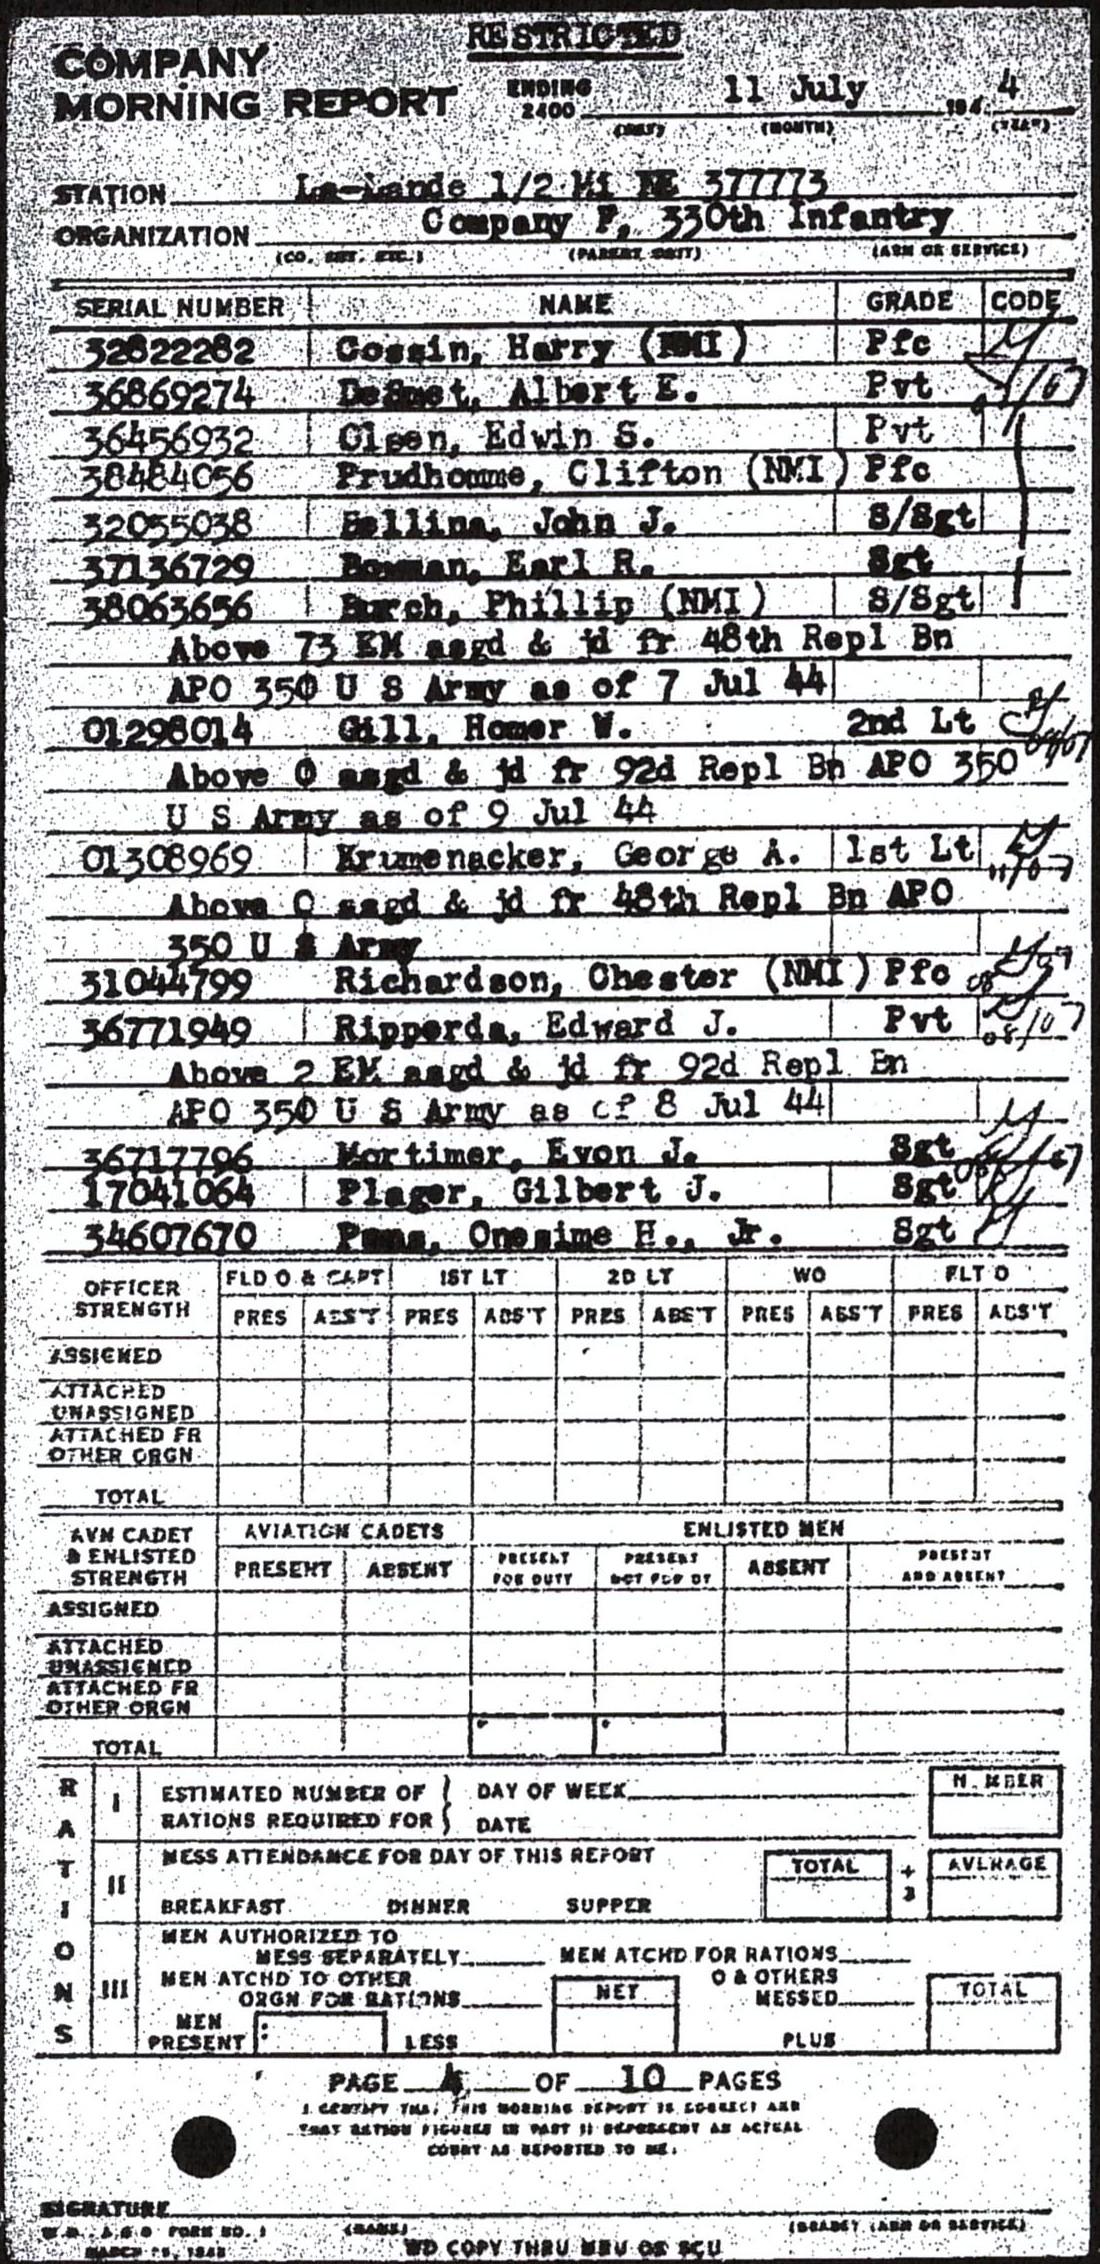 RESTRICTED
COMPANY
MORNING REPORT
ENDING
2400
11 July
194 4
(DAY) (MONTH) (YEAR)
STATION La-Lande 1/2 Mi NE 377773
ORGANIZATION Company F, 330th Infantry
(CO. DET. ETC.) (PARENT UNIT) (ARM OR SERVICE)
SERIAL NUMBER NAME GRADE CODE
32822282 Gossin, Harry (NMI) Pfc
36869274 DeSmet, Albert E. Pvt
36456932 Olsen, Edwin S. Pvt
38484056 Prudhomme, Clifton (NMI) Pfc
32055038 Bellina, John J. S/Sgt
37136729 Bowman, Earl R. Sgt
38063656 Burch, Phillip (NMI) S/Sgt
Above 73 EM asgd & jd fr 48th Repl Bn
APO 350 U S Army as of 7 Jul 44
01298014 Gill, Homer W. 2nd Lt
Above O asgd & jd fr 92d Repl Bn APO 350
U S Army as of 9 Jul 44
01308969 Krumenacker, George A. 1st Lt
Above O asgd & jd fr 48th Repl Bn APO
350 U S Army
31044799 Richardson, Chester (NMI) Pfc
36771949 Ripperda, Edward J. Pvt
Above 2 EM asgd & jd fr 92d Repl Bn
APO 350 U S Army as of 8 Jul 44
36717796 Mortimer, Evon J. Sgt
17041064 Plager, Gilbert J. Sgt
34607670 Onesime H., Jr. Sgt
OFFICER STRENGTH FLD O & CAPT 1ST LT 2D LT WO FLT O
PRES ABS'T PRES ABS'T PRES ABS'T PRES ABS'T PRES ABS'T
ASSIGNED
ATTACHED
UNASSIGNED
ATTACHED FR
OTHER ORGN
TOTAL
AVN CADET & ENLISTED STRENGTH AVIATION CADETS ENLISTED MEN
PRESENT ABSENT PRESENT FOR DUTY PRESENT NOT FOR DY ABSENT PRESENT AND ABSENT
ASSIGNED
ATTACHED
UNASSIGNED
ATTACHED FR
OTHER ORGN
TOTAL
RATIONS
I ESTIMATED NUMBER OF DAY OF WEEK NUMBER
RATIONS REQUIRED FOR DATE
II MESS ATTENDANCE FOR DAY OF THIS REPORT TOTAL ÷ 3 AVERAGE
BREAKFAST DINNER SUPPER
III MEN AUTHORIZED TO
MESS SEPARATELY MEN ATCHD FOR RATIONS
MEN ATCHD TO OTHER
ORGN FOR RATIONS NET O & OTHERS
MESSED TOTAL
MEN
PRESENT LESS PLUS
PAGE 4 OF 10 PAGES
I CERTIFY THAT THIS MORNING REPORT IS CORRECT AND
THAT RATION FIGURES IN PART II REPRESENT AN ACTUAL
COUNT AS REPORTED TO ME.
SIGNATURE
W.D., A.G.O. FORM NO. 1 (NAME) (GRADE) (ARM OR SERVICE)
WD COPY THRU MRU OR SCU